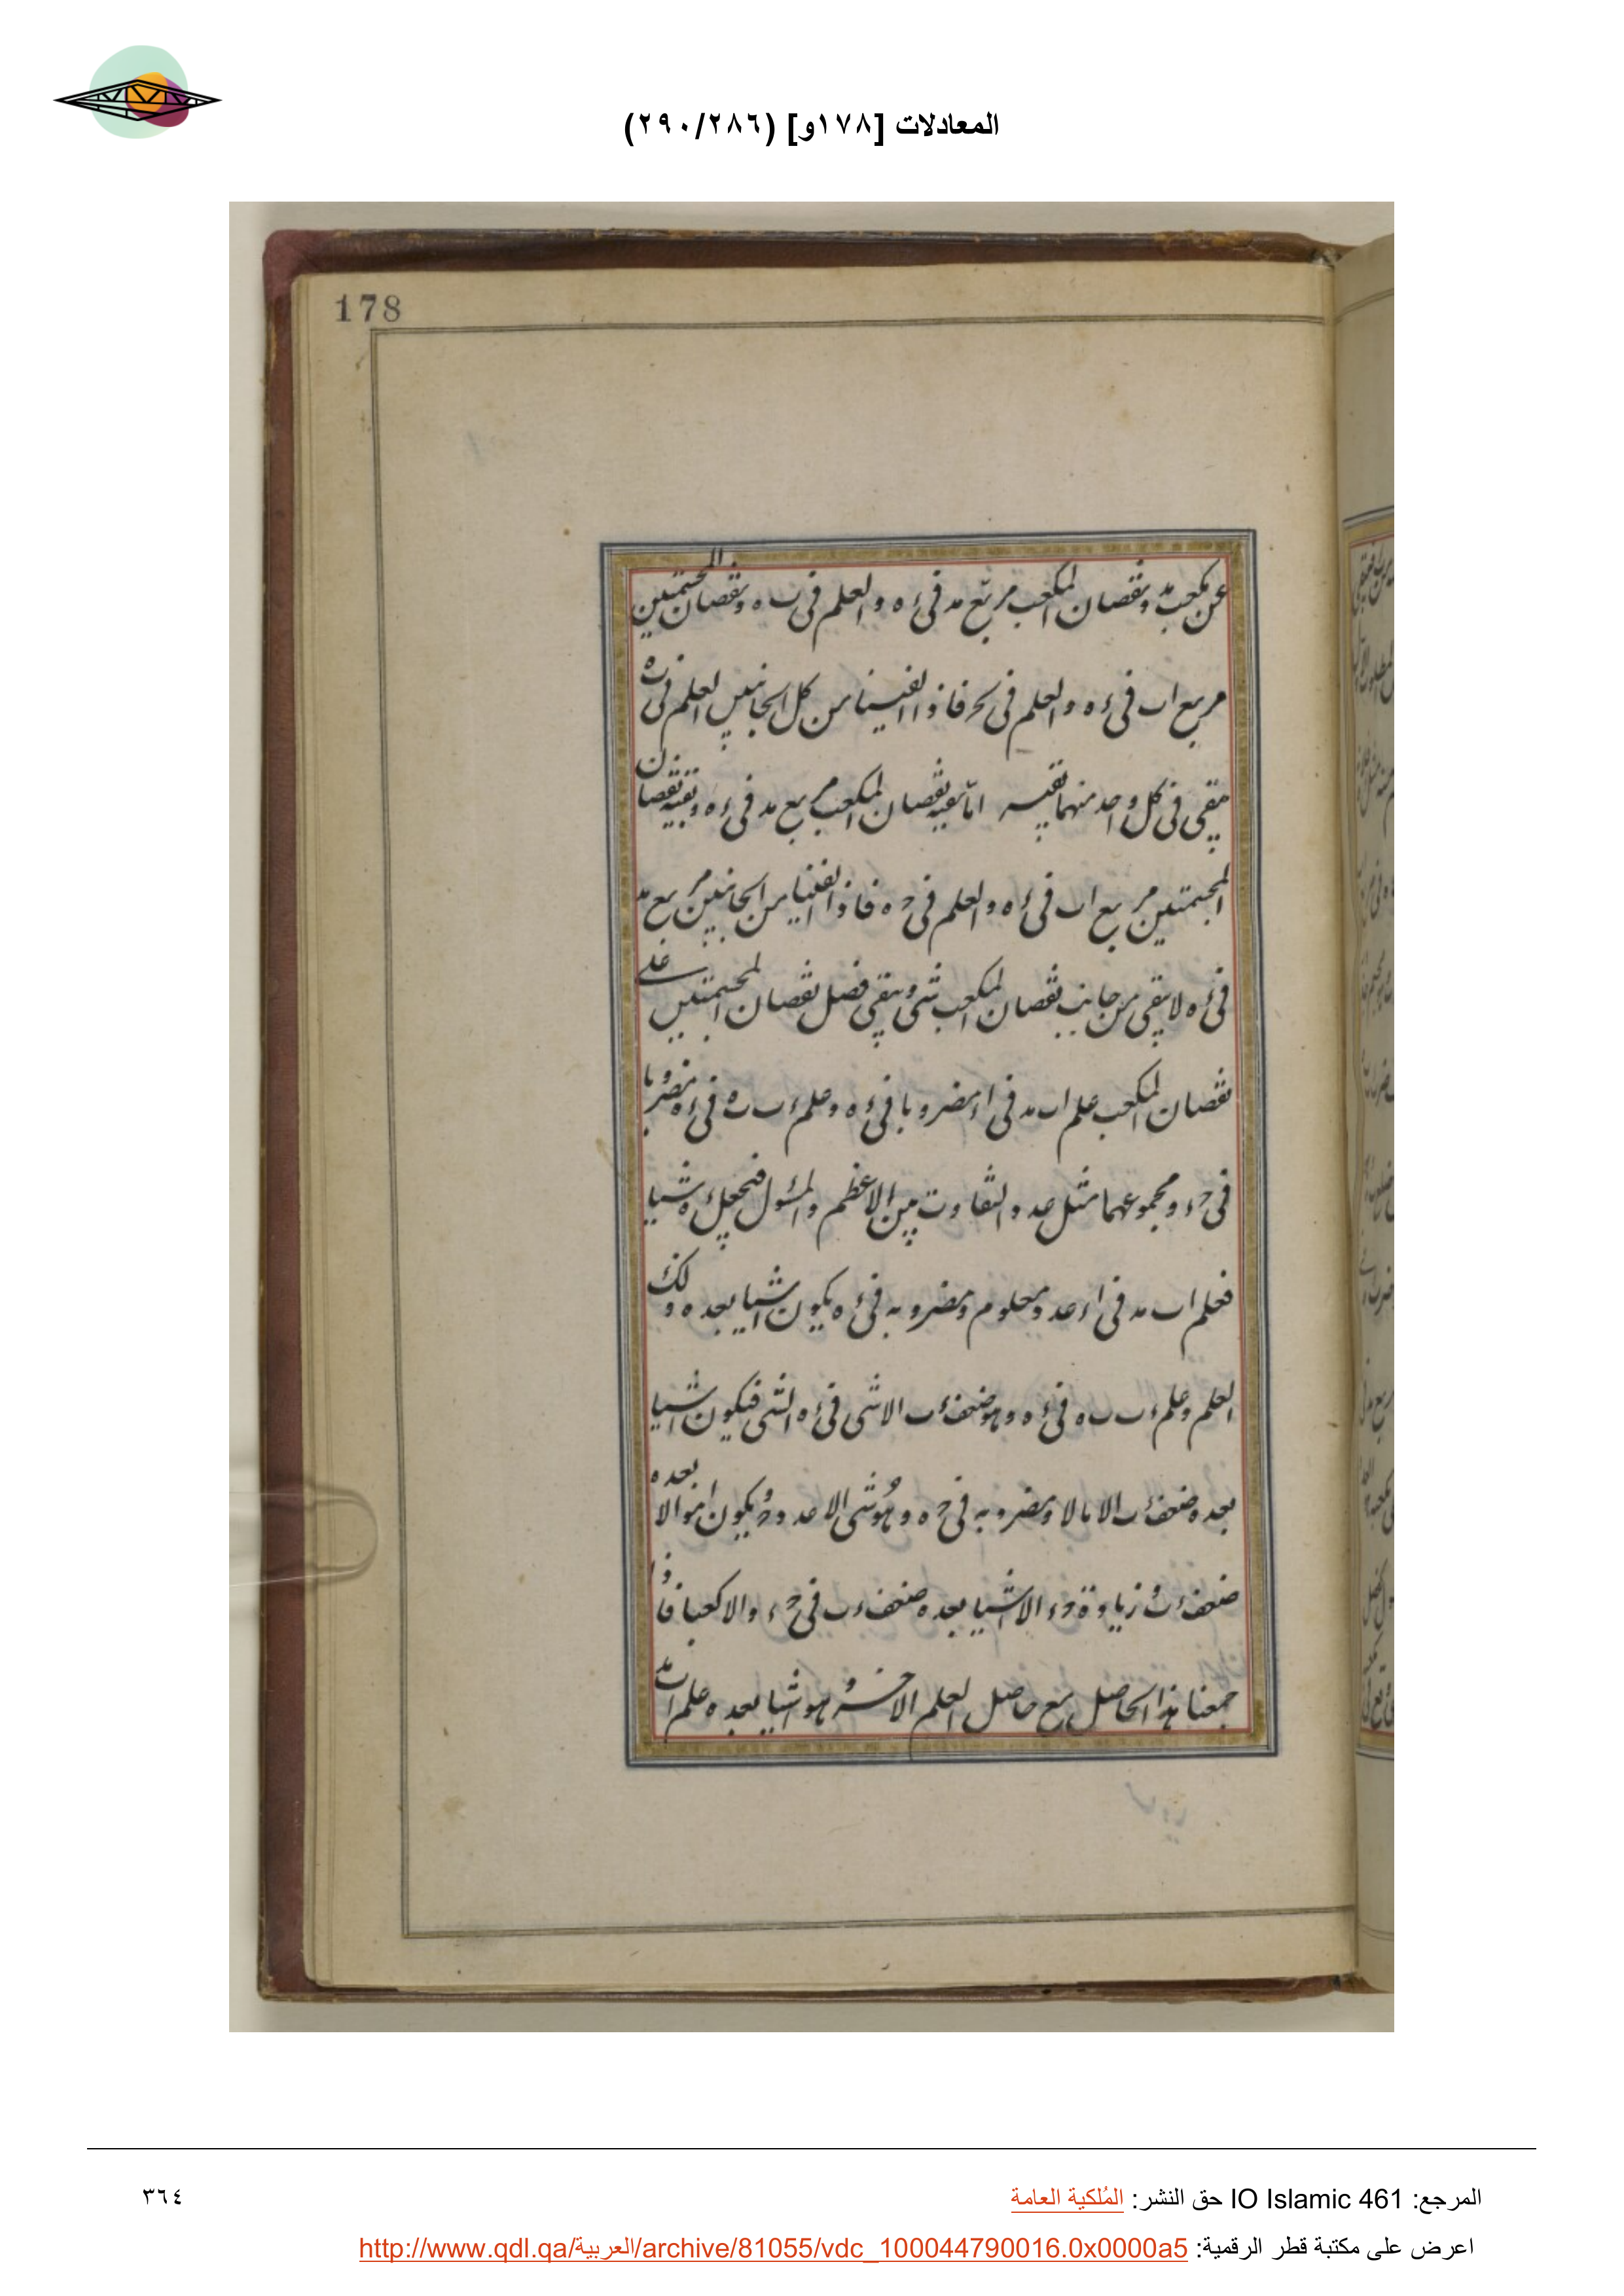 المعادلات [١٧٨و] (٢٨٦/٢٩٠)
178
عن مكعب ٮد ونقصان المكعب مربع ٮد فى ءه والعلم فى ٮ ه ونقصان المجتمعين
مربع اب فى ءه والعلم فى فاذا الفينا من كل الجانبين العلم فى
يبقى فى كل واحد منهما بقيه اما بقيه نقصان المكعب مربع ٮد فى ءه وبقيه نقصان
المجتمعين مربع اب فى ءه والعلم فى حه فاذا الفينا من الجانبين مربع ٮد
فى ءه لا يبقى من جانب نقصان المكعب شى ويبقى فضل نقصان المجتمعين على
نقصان المكعب علم اب ٮد فى اء مضروبا فى ءه وعلم ءب ب ه فى ءه مضروبا
فى حء ومجموعهما مثل عدد التفاوت بين الاعظم والمسئول فنجعل ءه شيا
فعلم اب ٮد فى اء عدد معلوم ومضروبه فى ءه يكون اشيا بعده ذلك
العلم وعلم ءب ب ه فى ءه وهو ضعف ءب الا شى فى ءه الشى فيكون اشيا
بعده ضعف ءب الا مالا ومضروبه فى حه وهو شى الا عدد حء يكون اموالا بعده
ضعف ءب زيادة حء الا اشيا بعده ضعف ءب فى حء والا كعبا فاذا
جمعنا هذا الحاصل مع حاصل العلم الاخر وهو اشيا بعده علم اب ٮد
المرجع: IO Islamic 461 حق النشر: المُلكية العامة
٣٦٤
اعرض على مكتبة قطر الرقمية: http://www.qdl.qa/العربية/archive/81055/vdc_100044790016.0x0000a5